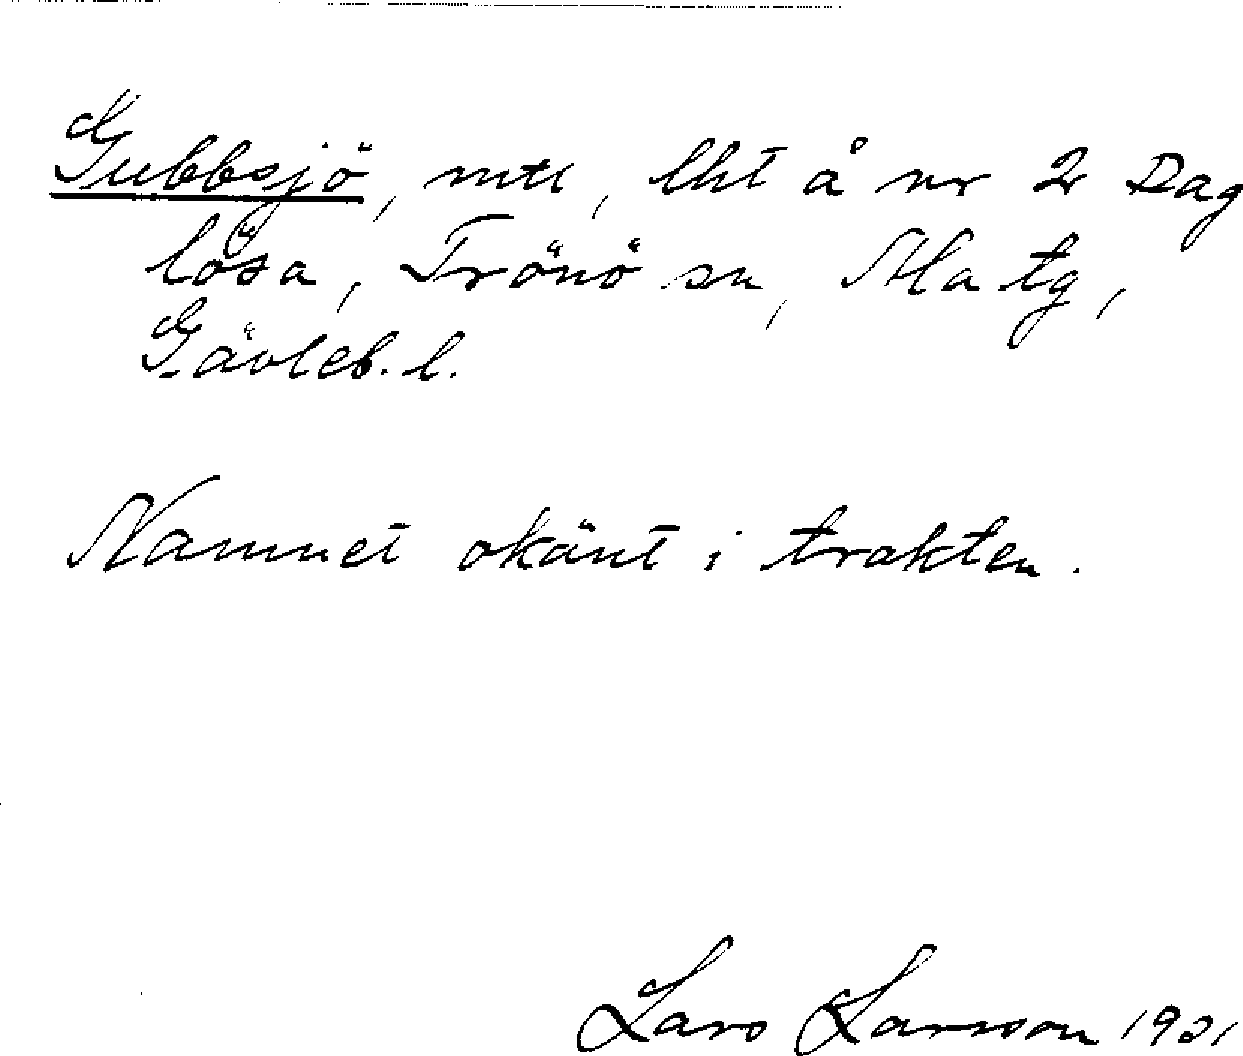 Gubbsjö, mtl, lht å nr 2 Dag
lösa, Trönö sn, Ala tg,
Gävleb. l.
Namnet okänt i trakten.
Lars Larsson 1931